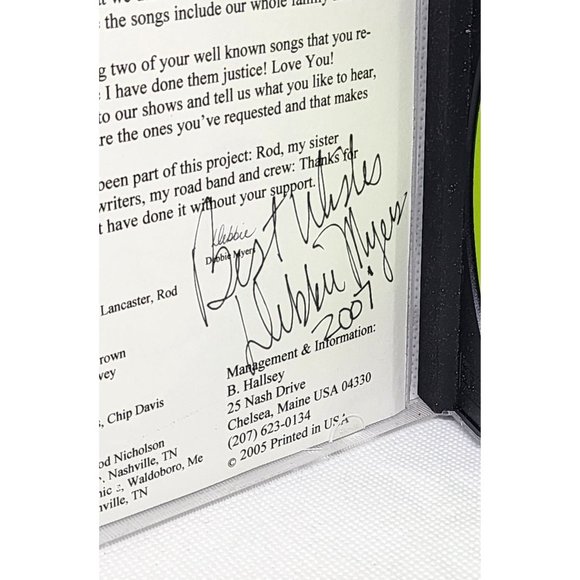 the songs include our whole family
g two of your well known songs that you re-
I have done them justice! Love You!
to our shows and tell us what you like to hear,
re the ones you've requested and that makes
been part of this project: Rod, my sister
writers, my road band and crew: Thanks for
t have done it without your support.
Debbie
Debbie Myers
Best Wishes
Debbie Myers
2007
Lancaster, Rod
rown
vey
s, Chip Davis
od Nicholson
, Nashville, TN
nic
, Waldoboro, Me
nville, TN
Management & Information:
B. Hallsey
25 Nash Drive
Chelsea, Maine USA 04330
(207) 623-0134
© 2005 Printed in USA